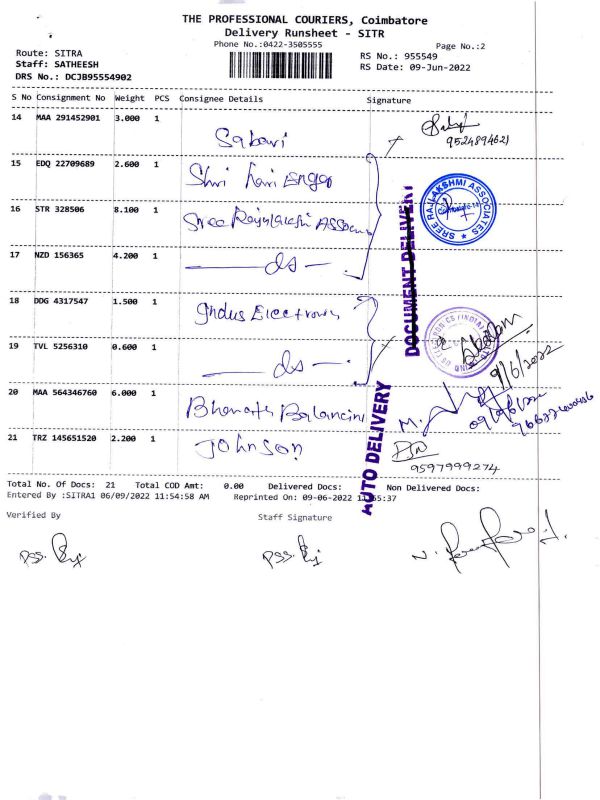 THE PROFESSIONAL COURIERS, Coimbatore
Delivery Runsheet - SITR
Phone No.:0422-3505555
Page No.:2
Route: SITRA
RS No.: 955549
Staff: SATHEESH
RS Date: 09-Jun-2022
DRS No.: DCJB95554902
S No Consignment No Weight PCS Consignee Details Signature
14 MAA 291452901 3.000 1
Sabari
9524894621
15 EDQ 22709689 2.600 1
Shri Hari
SREE RAJLAKSHMI ASSOCIATES
16 STR 328506 8.100 1
Sree Rajalakshi Assocu
17 NZD 156365 4.200 1
ds
DOCUMENT DELIVERY
18 DDG 4317547 1.500 1
Indus Electronis
19 TVL 5256310 0.600 1
ds
9/6/2022
20 MAA 564346760 6.000 1
Bharath Balancing
M.
21 TRZ 145651520 2.200 1
Johnson
9597999274
AUTO DELIVERY
Total No. Of Docs: 21 Total COD Amt: 0.00 Delivered Docs: Non Delivered Docs:
Entered By :SITRA1 06/09/2022 11:54:58 AM Reprinted On: 09-06-2022 11:55:37
Verified By Staff Signature